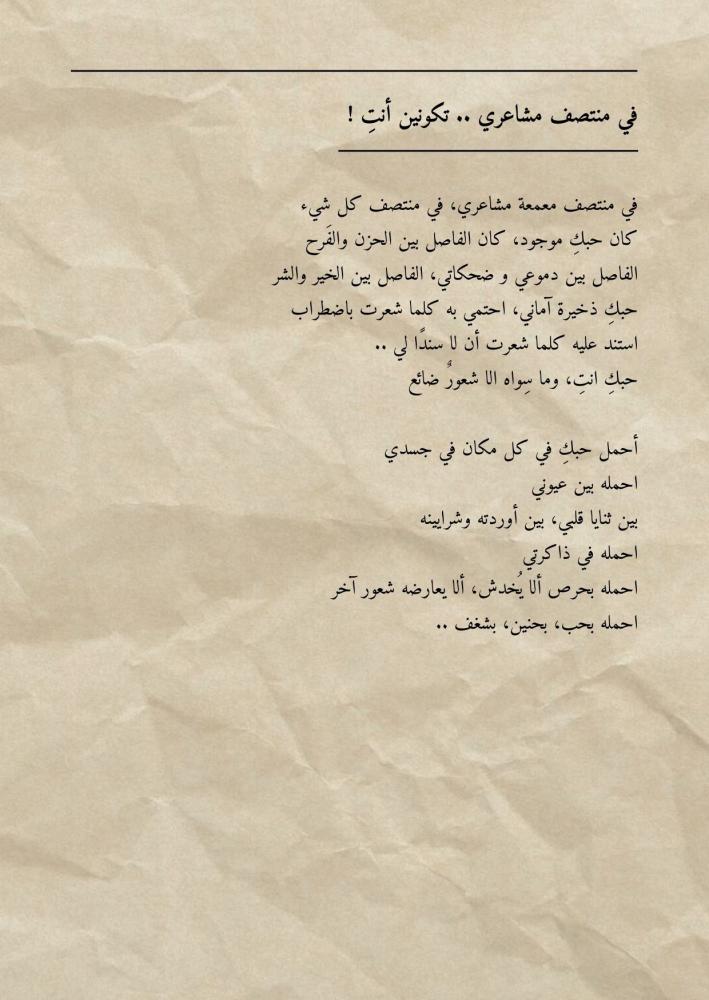 في منتصف مشاعري .. تكونين أنتِ !
في منتصف معمعة مشاعري، في منتصف كل شيء
كان حبكِ موجود، كان الفاصل بين الحزن والفَرح
الفاصل بين دموعي و ضحكاتي، الفاصل بين الخير والشر
حبكِ ذخيرة آماني، احتمي به كلما شعرت باضطراب
استند عليه كلما شعرت أن لا سندًا لي ..
حبكِ انتِ، وما سِواه الا شعورٌ ضائع
أحمل حبكِ في كل مكان في جسدي
احمله بين عيوني
بين ثنايا قلبي، بين أوردته وشرايينه
احمله في ذاكرتي
احمله بحرص ألا يُخدش، ألا يعارضه شعور آخر
احمله بحب، بحنين، بشغف ..